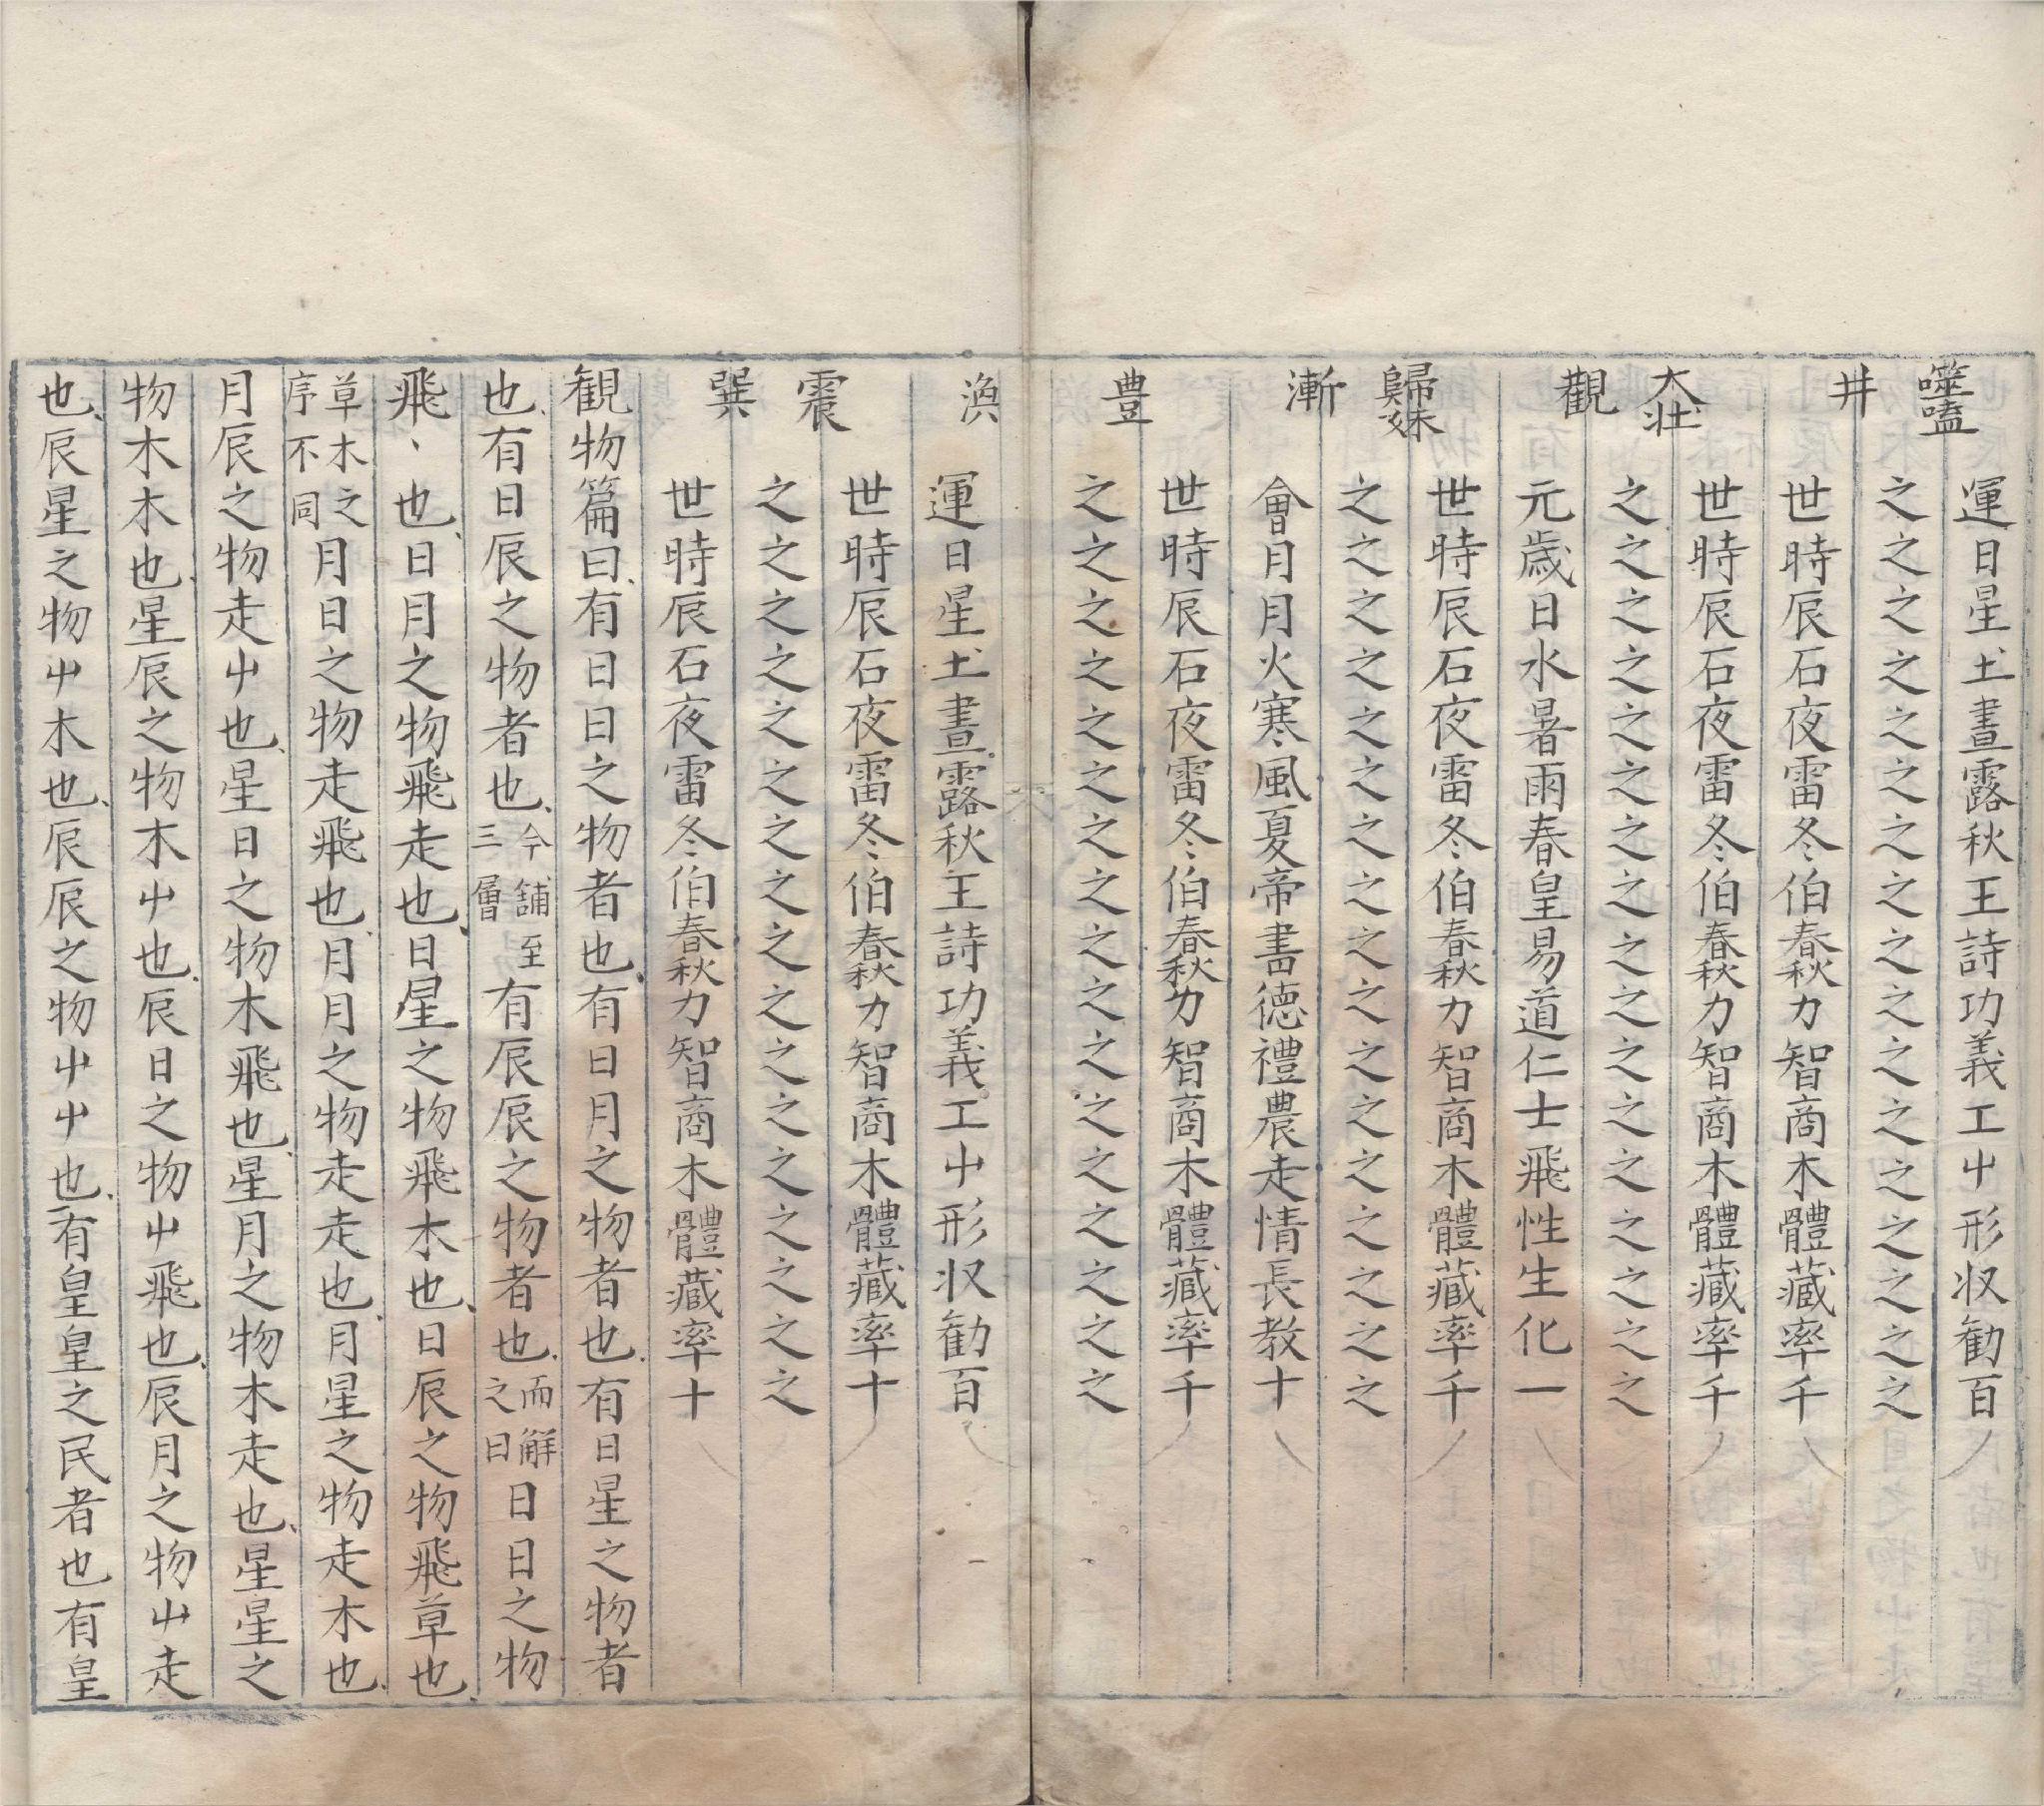 噬嗑
運日星土晝露秋王詩功義工屮形収勧百
井
之之之之之之之之之之之之之之之之之
世時辰石夜雷冬伯春秋力智商木體藏率千
大壯
世時辰石夜雷冬伯春秋力智商木體藏率千
觀
之之之之之之之之之之之之之之之之之
元歳日水暑雨春皇易道仁士飛性生化一
歸妹
世時辰石夜雷冬伯春秋力智商木體藏率千
漸
之之之之之之之之之之之之之之之之之
會月月火寒風夏帝書德禮農走情長教十
豊
世時辰石夜雷冬伯春秋力智商木體藏率千
之之之之之之之之之之之之之之之之之
渙
運日星土晝露秋王詩功義工屮形収勧百
震
世時辰石夜雷冬伯春秋力智商木體藏率十
巽
之之之之之之之之之之之之之之之之之
世時辰石夜雷冬伯春秋力智商木體藏率十
観物篇曰、有日日之物者也、有日月之物者也、有日星之物者
也、有日辰之物者也、今舖至三層有辰辰之物者也、而解之曰日日之物
飛、也、日月之物飛走也、日星之物飛木也、日辰之物飛草也、
草木之序不同月日之物走飛也、月月之物走走也、月星之物走木也、
月辰之物走屮也、星日之物木飛也、星月之物木走也、星星之
物木木也、星辰之物木屮也、辰日之物屮飛也、辰月之物屮走
也、辰星之物屮木也、辰辰之物屮屮也、有皇皇之民者也有皇